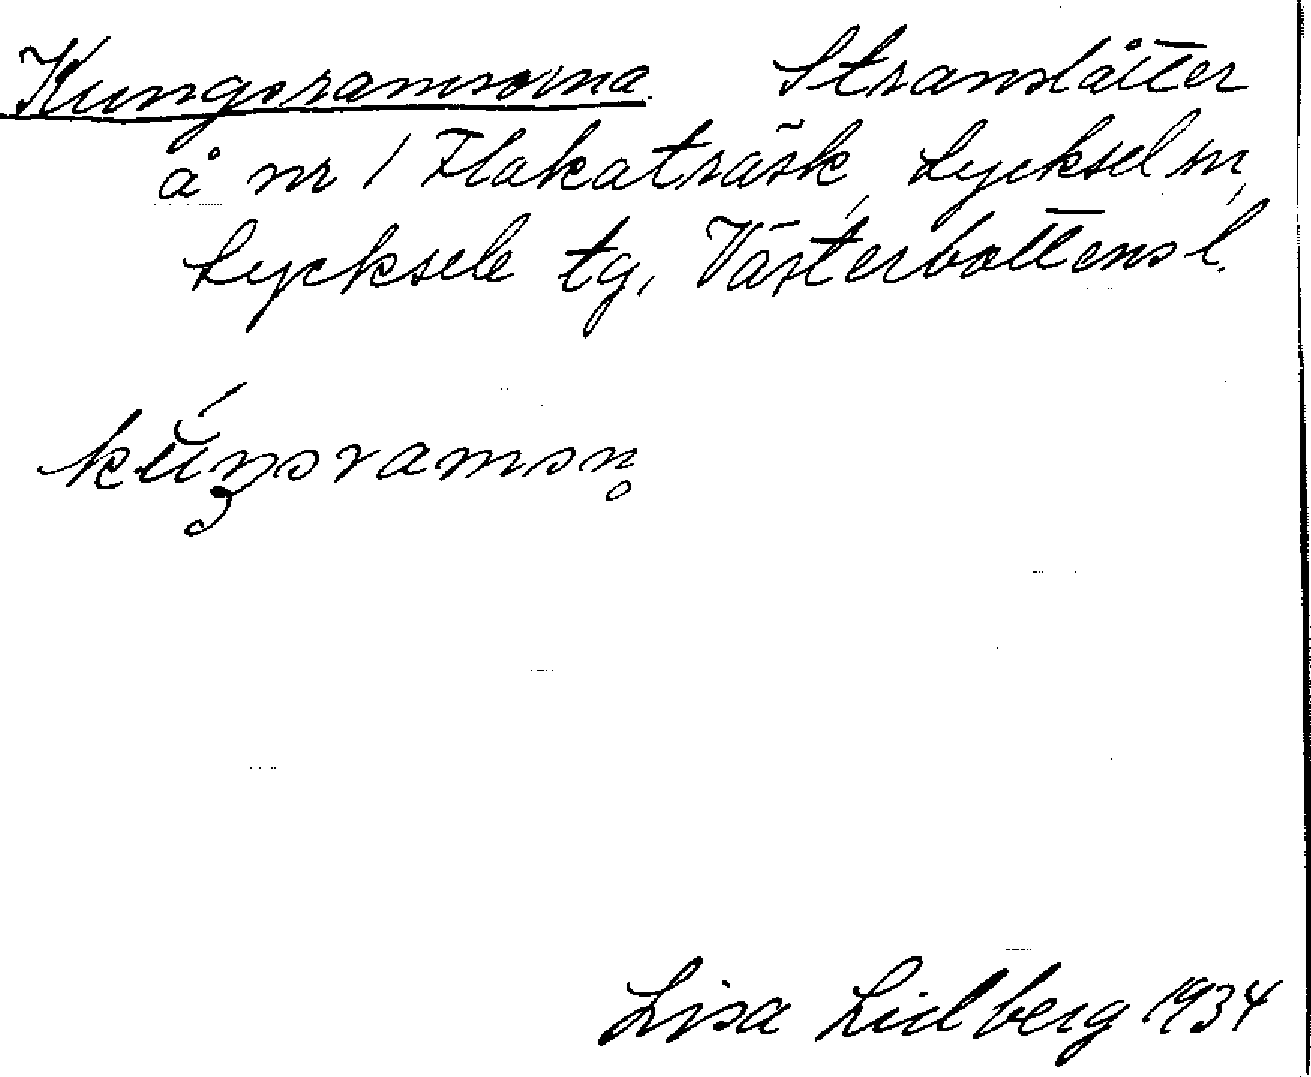 Kungsramsorna. Strandslåtter
å nr 1 Flakaträsk, Lycksele sn,
Lycksele tg, Västerbottens l.
kúŋsramsn̥
Lisa Lidberg 1934